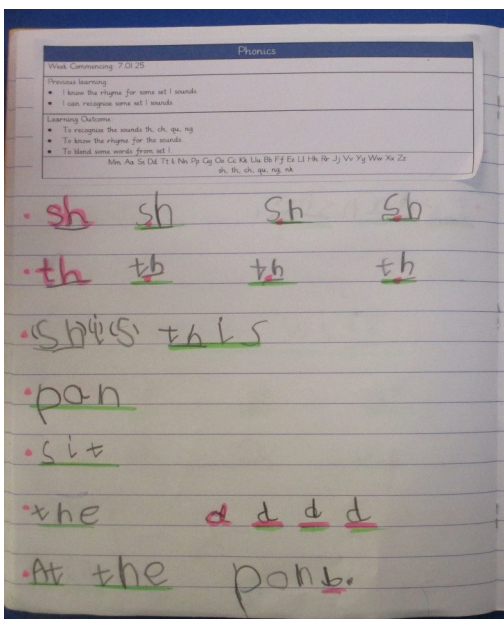 Phonics
Week Commencing: 7.01.25
Previous learning:
• I know the rhyme for some set 1 sounds
• I can recognise some set 1 sounds
Learning Outcome
• To recognise the sounds th, ch, qu, ng
• To know the rhyme for the sounds.
• To blend some words from set 1.
Mm Aa Ss Dd Tt Ii Nn Pp Gg Oo Cc Kk Uu Bb Ff Ee Ll Hh Rr Jj Vv Yy Ww Xx Zz
sh, th, ch, qu, ng, nk
• sh sh sh sh
• th th th th
• this
• pan
• sit
• the d d d d
• At the ponb.